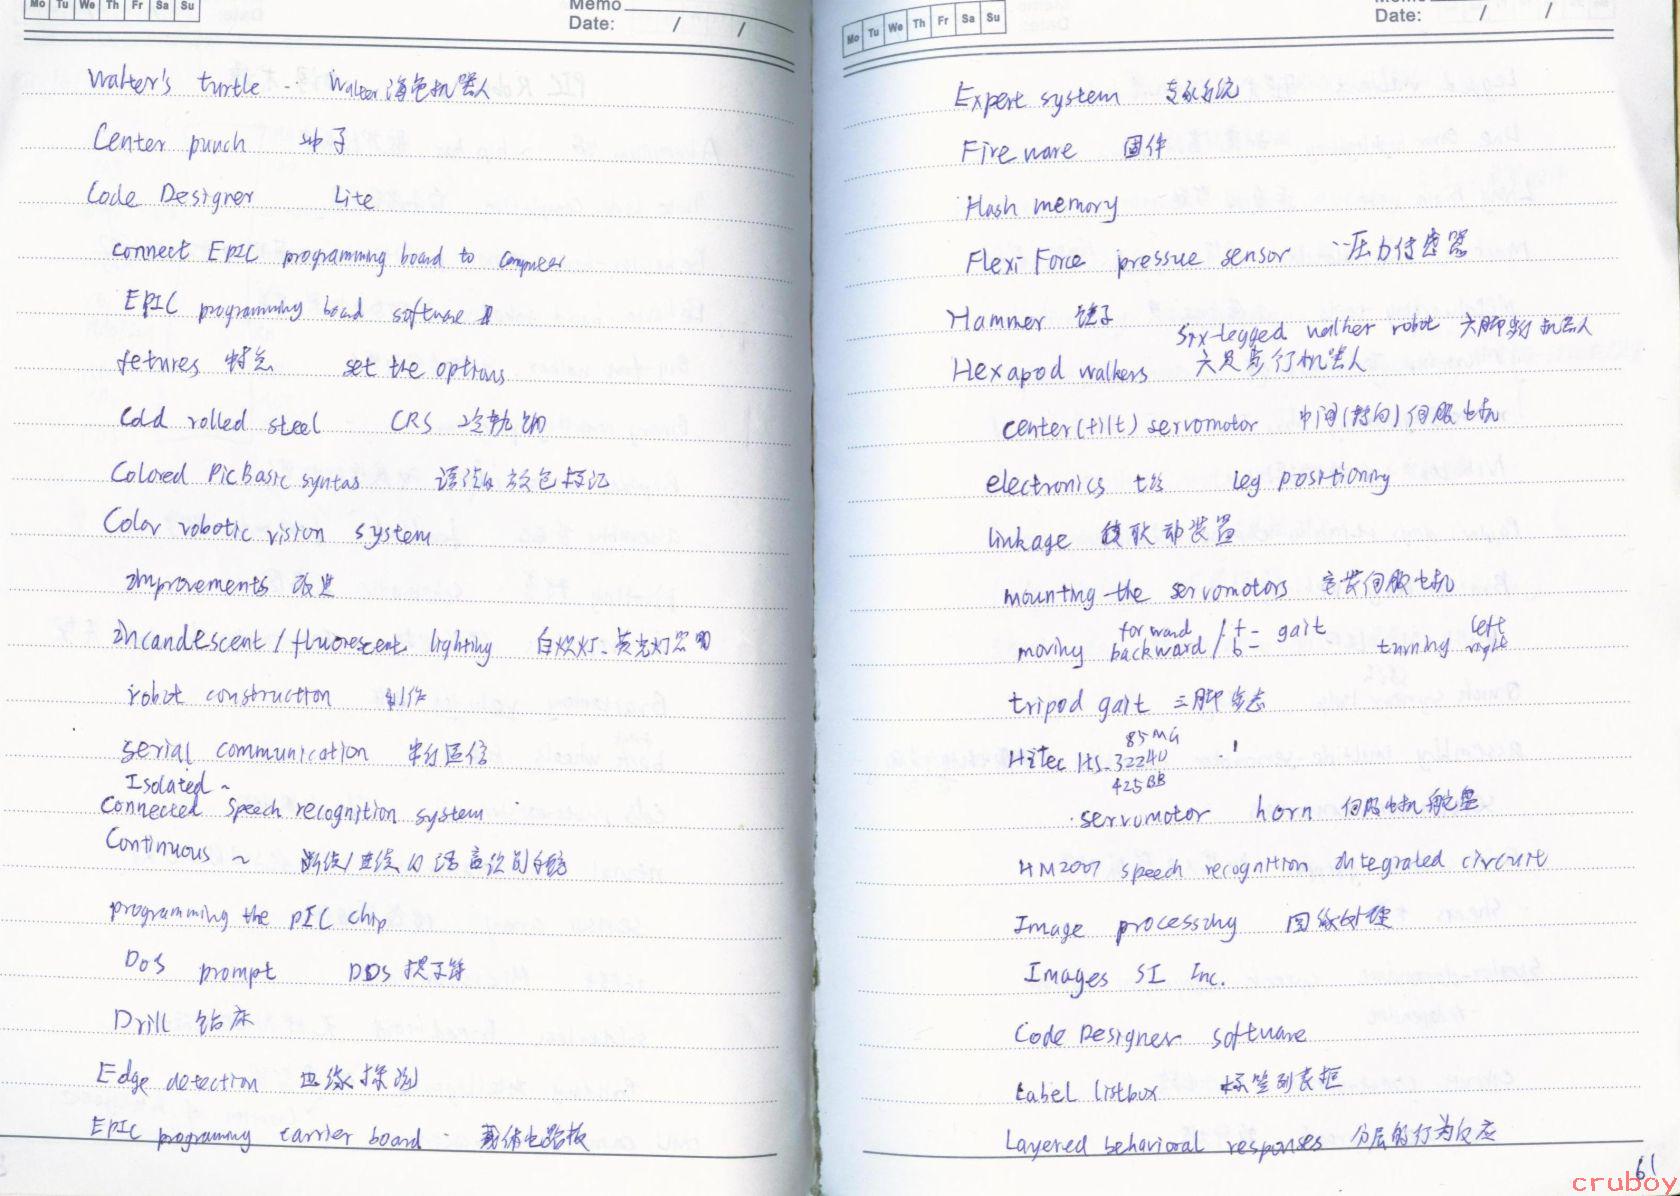 Mo Tu We Th Fr Sa Su
Memo
Date: / /
Walter's turtle - Walter海龟机器人
Center punch 冲子
Code Designer Lite
connect EPIC programming board to computer
EPIC programming board software
fetures 特点 set the options
Cold rolled steel CRS 冷轧钢
Colored PicBasic syntax 语法的放色标记
Color robotic vision system
improvements 改进
incandescent / fluorescent lighting 白炽灯、荧光灯照明
robot construction 制作
serial communication 串行通信
Isolated ~
Connected speech recognition system
Continuous ~ 断续/连续的语音识别系统
programming the PIC chip
DOS prompt DOS提示符
Drill 钻床
Edge detection 边缘探测
EPIC programing carrier board 载体电路板
Mo Tu We Th Fr Sa Su
Date: / /
Expert system 专家系统
Fireware 固件
Flash memory
Flexi Force pressue sensor 压力传感器
Hammer 锤子
six-legged walker robot 六脚步行机器人
Hexapod walkers 六足步行机器人
center(tilt) servomotor 中间(转向)伺服电机
electronics 电路 leg positioning
linkage 联动装置
mounting the servomotors 安装伺服电机
forward / f- gait left
moving backward / b- turning right
tripod gait 三脚步态
85MG
HiTec HS-322HD
425BB
servomotor horn 伺服电机舵盘
HM2007 speech recognition integrated circuit
Image processing 图像处理
Images SI Inc.
Code Designer software
Label listbox 标签列表框
Layered behavioral responses 分层的行为反应
61
cruboy